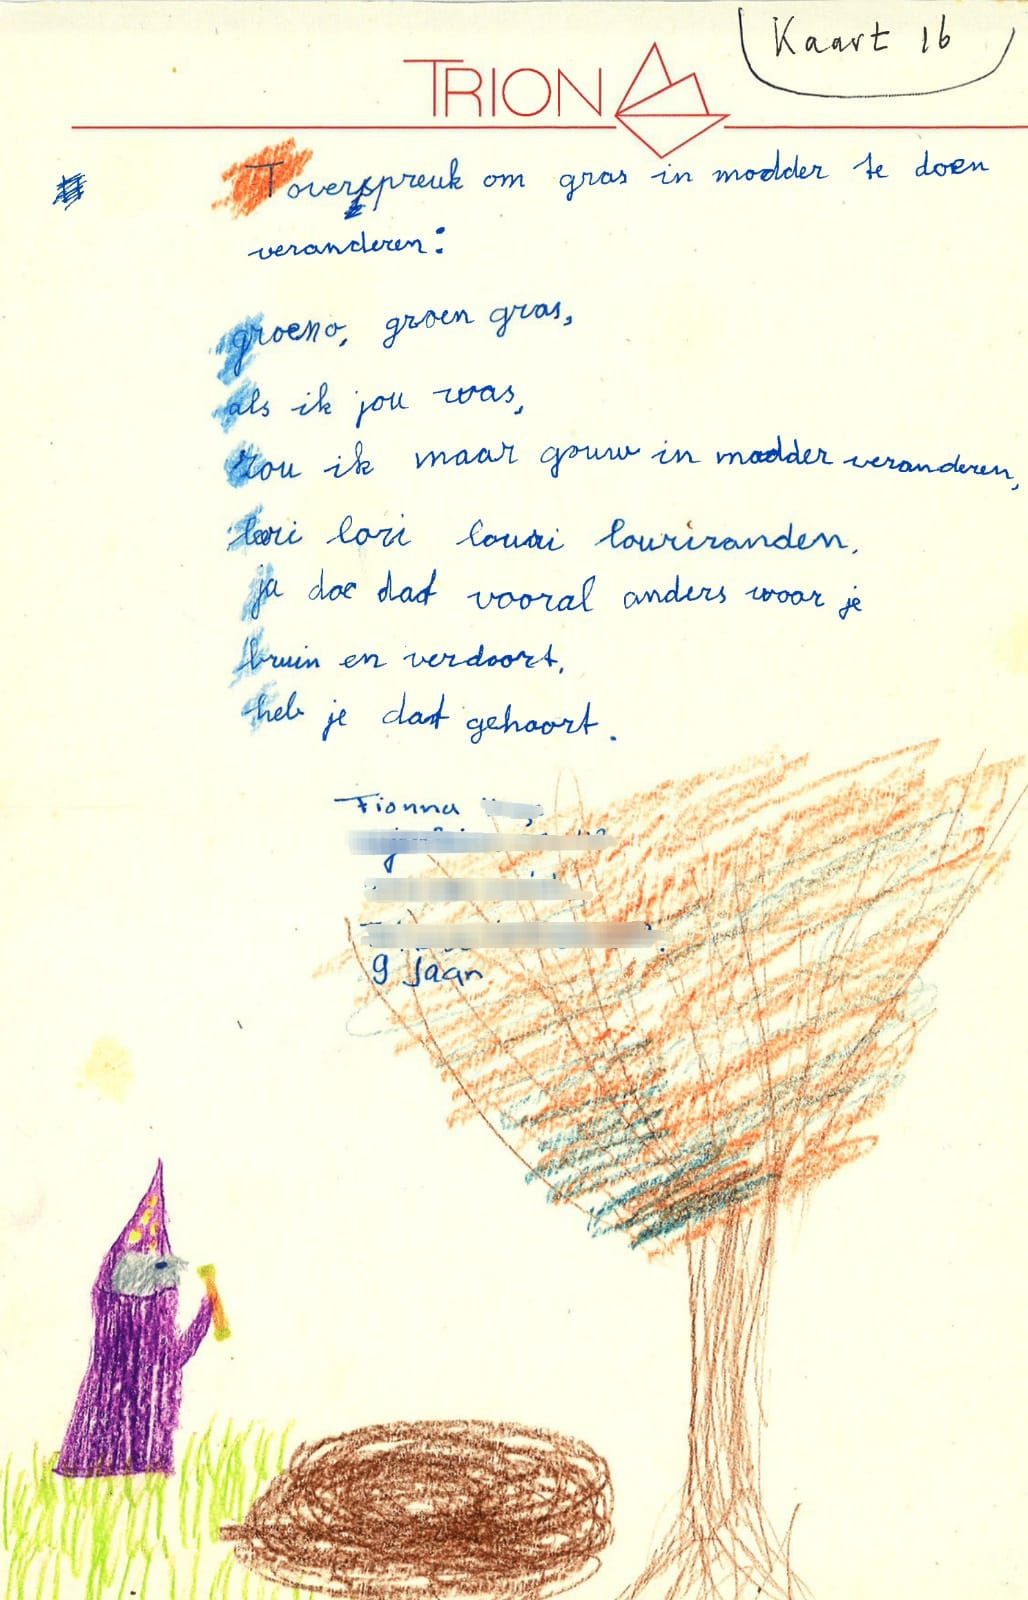 Kaart 16
TRION
Toverspreuk om gras in modder te doen
veranderen:
groeno, groen gras,
als ik jou was,
zou ik maar gouw in modder veranderen,
lori lori louri louriranden.
ja doe dat vooral anders woor je
bruin en verdoort,
heb je dat gehoort.
Fionna
9 Jaar